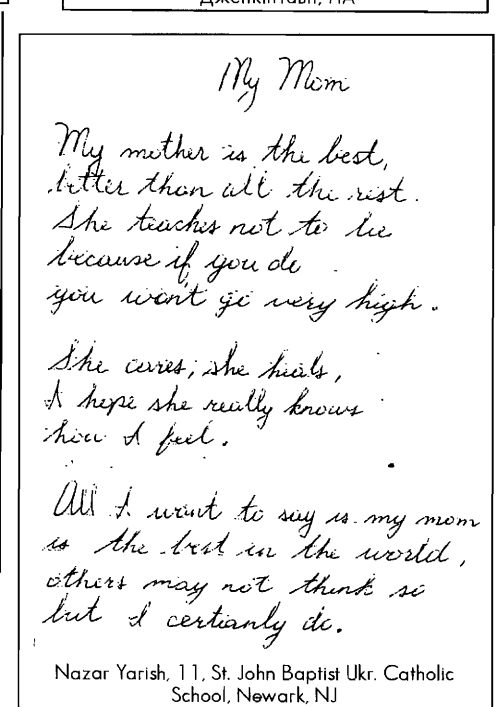 Дженкінтавн, ПА
My Mom
My mother is the best,
better than all the rest.
She teaches not to lie
because if you do
you won't go very high.
She cares; she heals,
I hope she really knows
how I feel.
All I want to say is my mom
is the best in the world,
others may not think so
but I certianly do.
Nazar Yarish, 11, St. John Baptist Ukr. Catholic
School, Newark, NJ